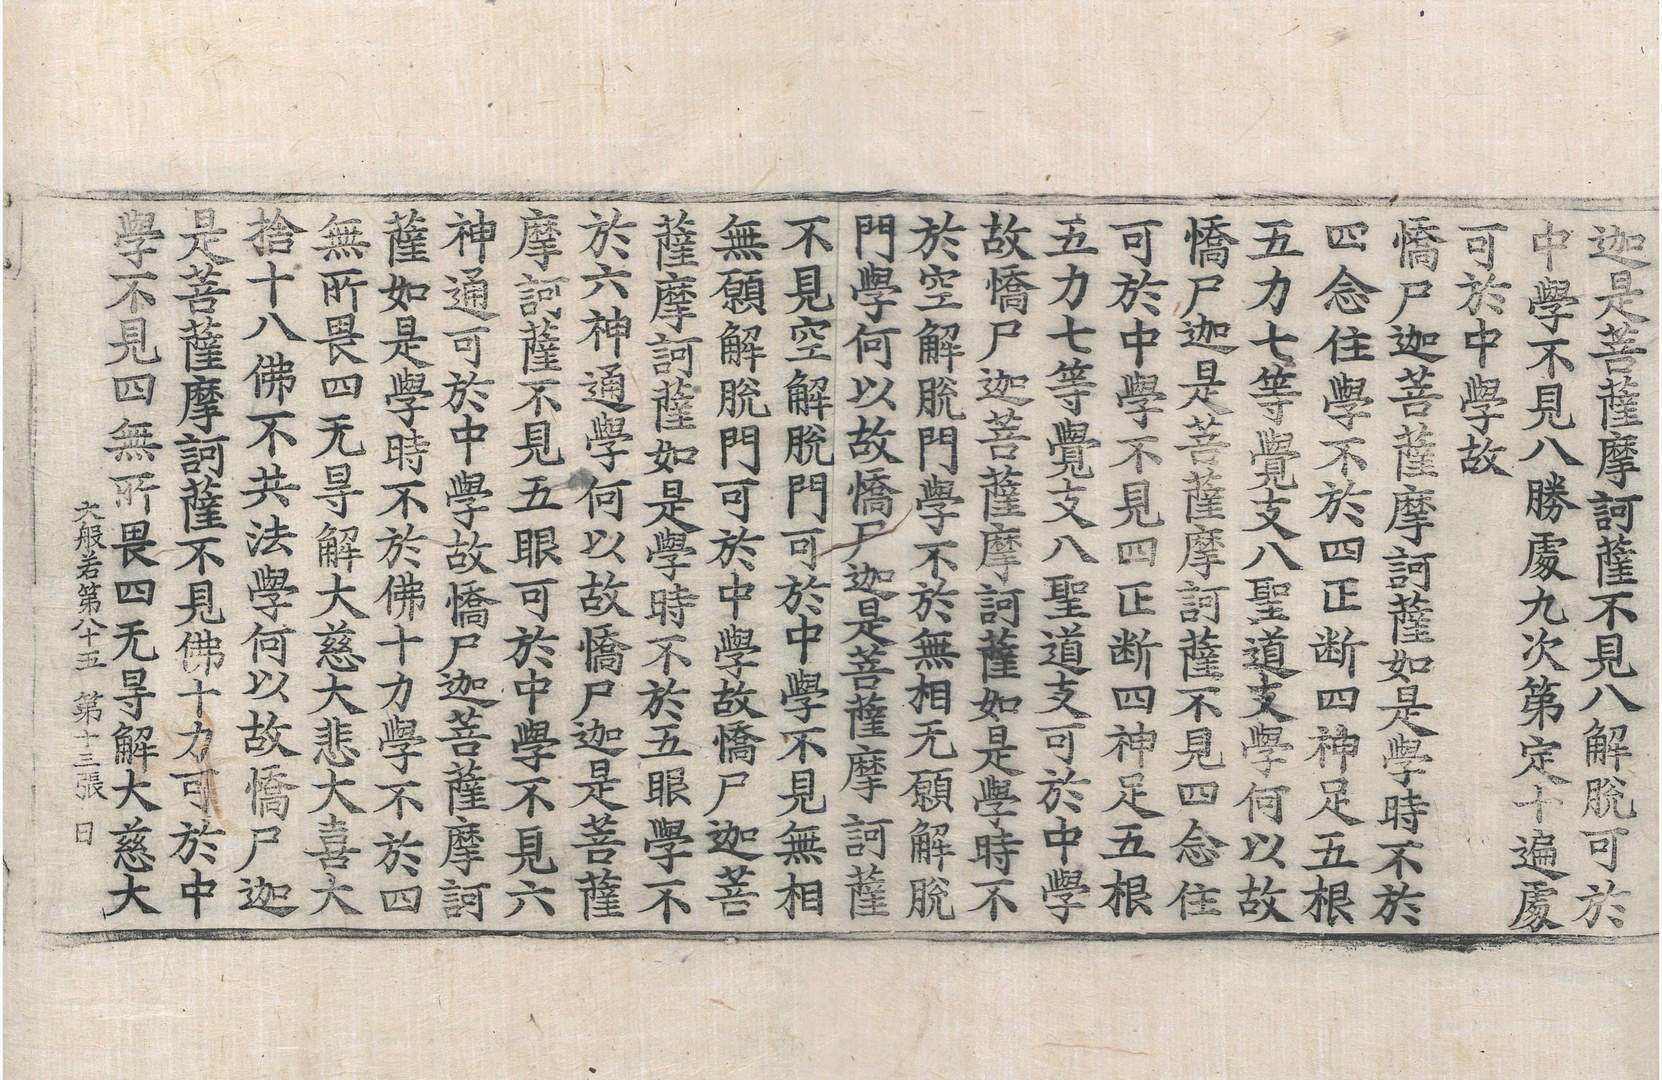 迦是菩薩摩訶薩不見八解脫可於
中學不見八勝處九次第定十遍處
可於中學故
憍尸迦菩薩摩訶薩如是學時不於
四念住學不於四正断四神足五根
五力七等覺支八聖道支學何以故
憍尸迦是菩薩摩訶薩不見四念住
可於中學不見四正断四神足五根
五力七等覺支八聖道支可於中學
故憍尸迦菩薩摩訶薩如是學時不
於空解脫門學不於無相无願解脫
門學何以故憍尸迦是菩薩摩訶薩
不見空解脫門可於中學不見無相
無願解脫門可於中學故憍尸迦菩
薩摩訶薩如是學時不於五眼學不
於六神通學何以故憍尸迦是菩薩
摩訶薩不見五眼可於中學不見六
神通可於中學故憍尸迦菩薩摩訶
薩如是學時不於佛十力學不於四
無所畏四无㝵解大慈大悲大喜大
捨十八佛不共法學何以故憍尸迦
是菩薩摩訶薩不見佛十力可於中
學不見四無所畏四无㝵解大慈大
大般若第八十五 第十三張 日